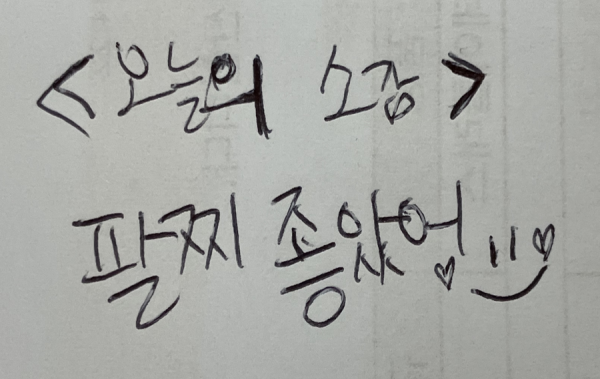 <오늘의 소감>
팔찌 좋았어